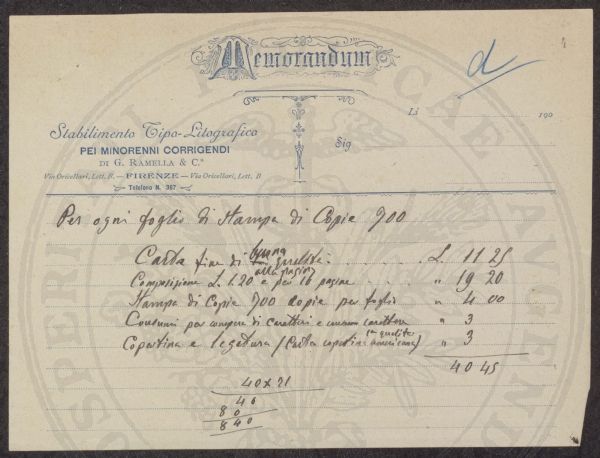 Memorandum
d
Li 190
Stabilimento Tipo-Litografico
PEI MINORENNI CORRIGENDI
DI G. RAMELLA & C.º
Via Oricellari, Lett. B. — FIRENZE — Via Oricellari, Lett. B
Telefono N. 367
Sig
Per ogni foglio di Stampa di Copie 700
Carta fine di buona qualità L. 11 25
Composizione L. 1.20 a pag. per 16 pagine " 19 20
Stampa di Copie 700 copie per foglio " 4 00
Consumi per di caratteri e carattere " 3
Copertina e legatura (Carta copertina 1a qualità americana) " 3
40 45
40 x 21
40
80
840